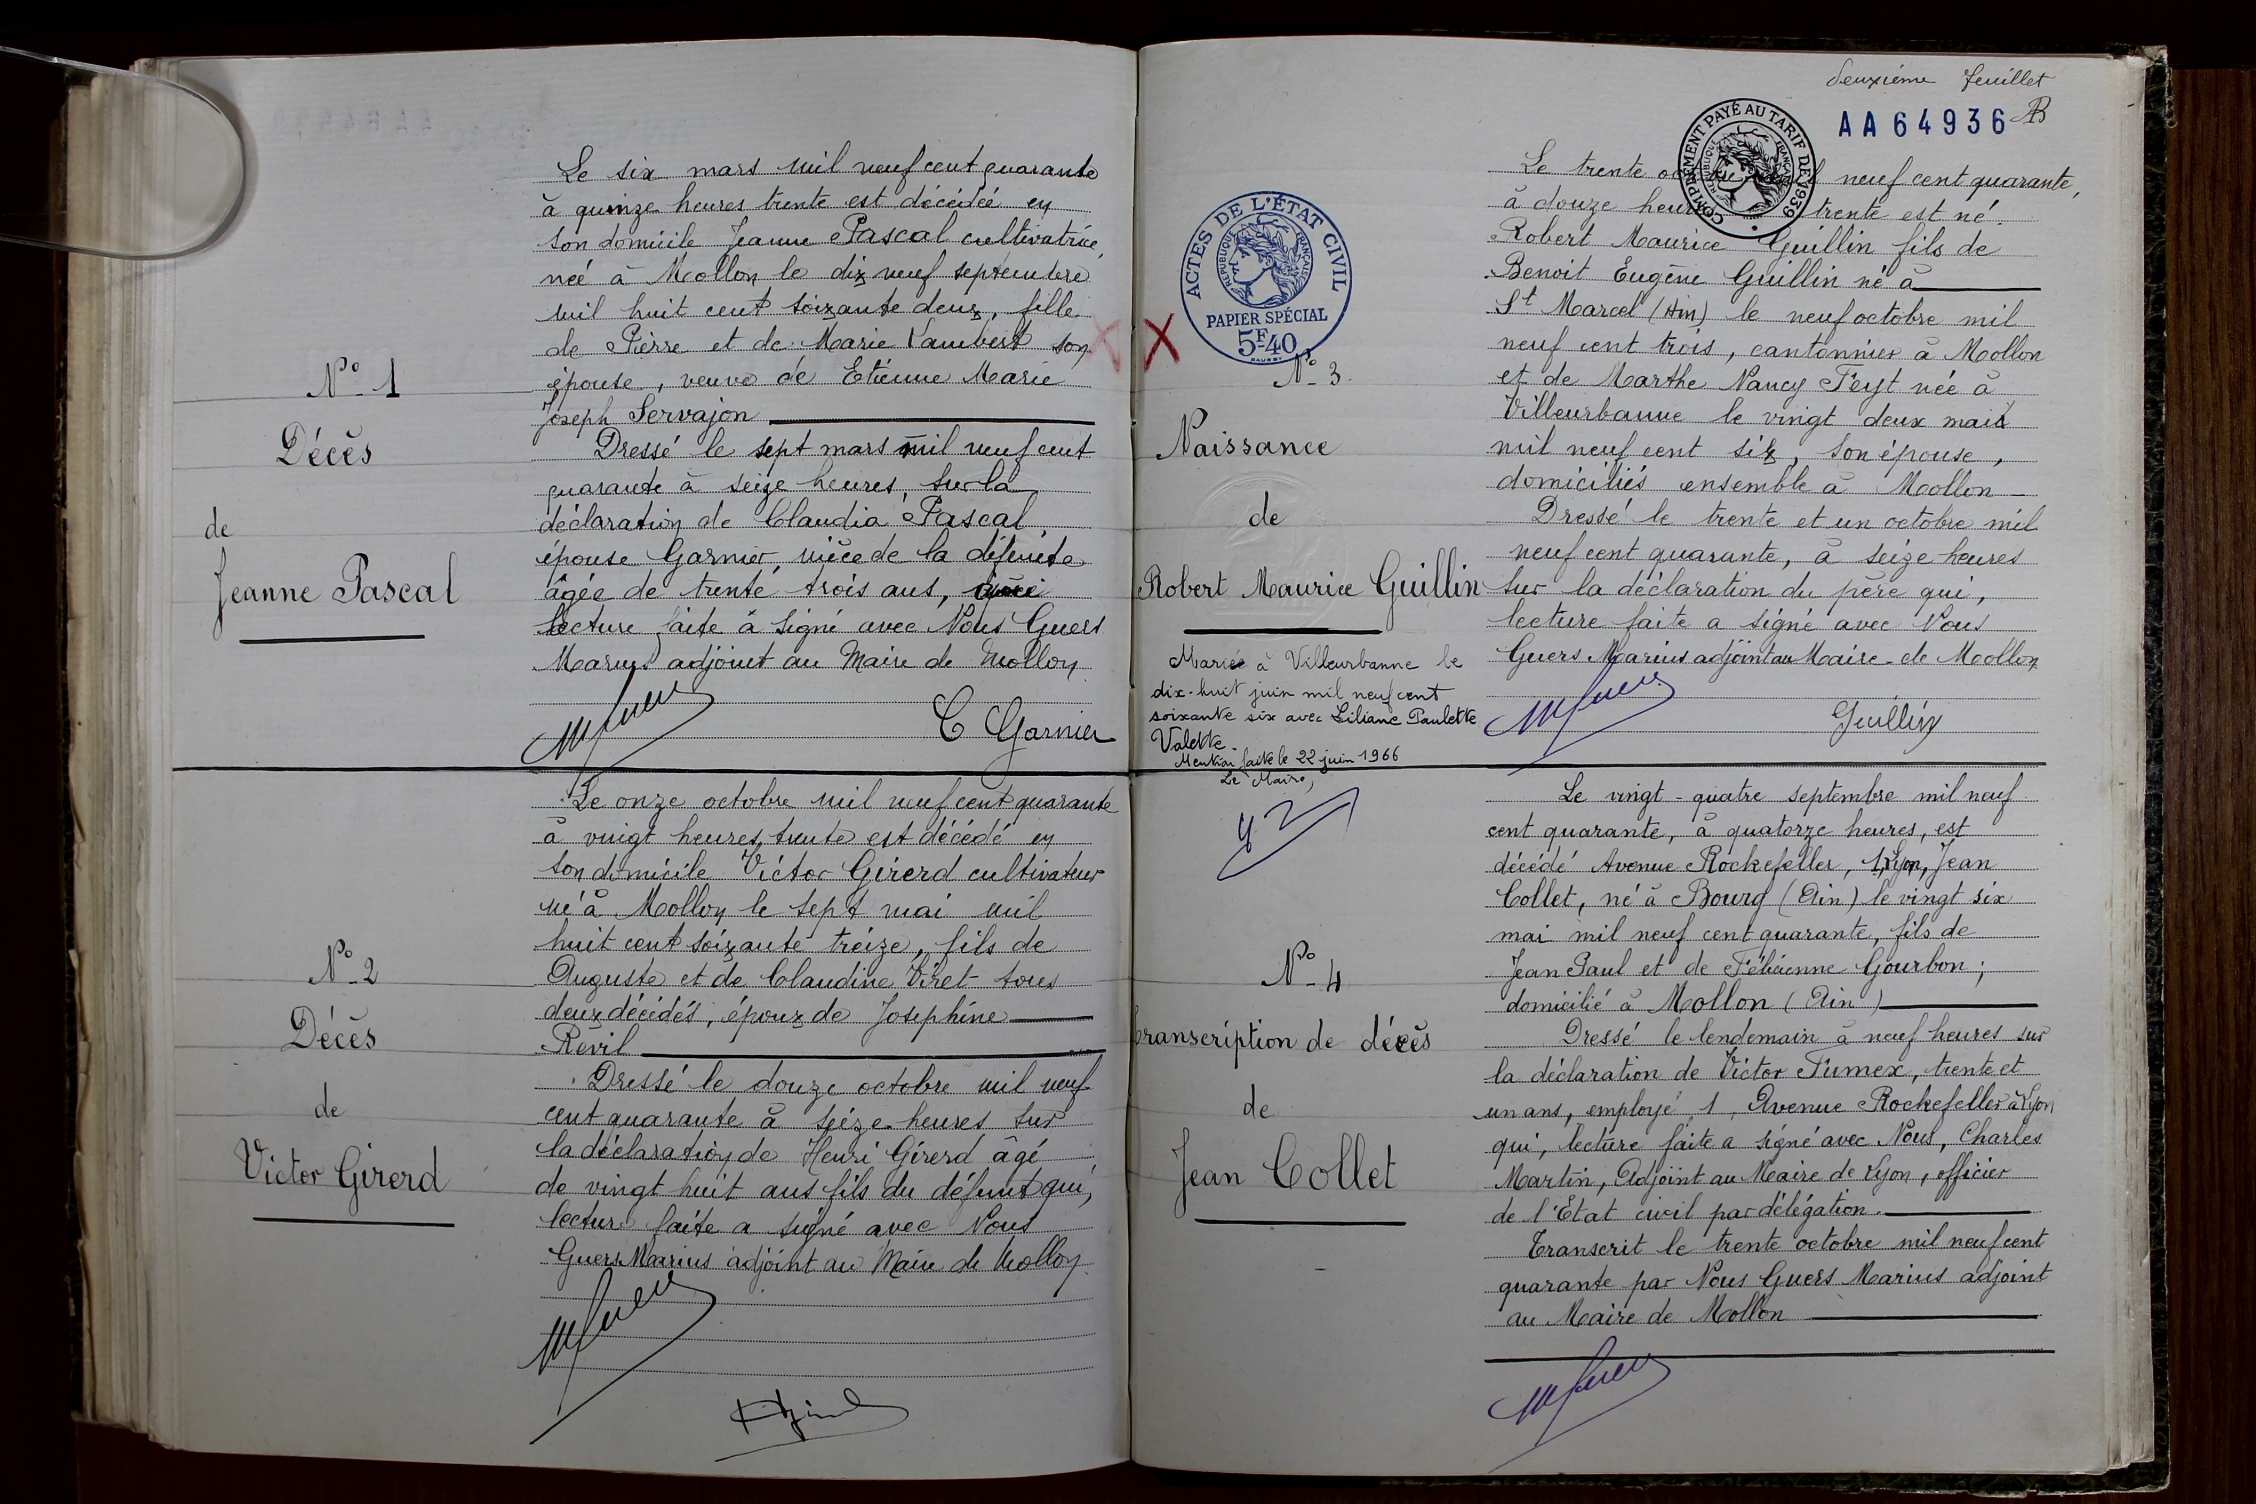 Le six mars mil neuf cent quarante
à quinze heures trente est décédée en
son domicile Jeanne Pascal cultivatrice,
née à Mollon le dix neuf septembre
mil huit cent soixante deux, fille
de Pierre et de Marie Vambert son
épouse, veuve de Etienne Marie
Joseph Servajon
Dressé le sept mars mil neuf cent
quarante à seize heures, sur la
déclaration de Claudia Pascal
épouse Garnier, nièce de la défunte
âgée de trente trois ans,
lecture faite à signé avec Nous Guers
Marius adjoint au Maire de Mollon
C Garnier
N° 1
Décès
de
Jeanne Pascal
Le onze octobre mil neuf cent quarante
à vingt heures trente est décédé en
son domicile Victor Girerd cultivateur
né à Mollon le sept mai mil
huit cent soixante treize, fils de
Auguste et de Claudine Viret tous
deux décédés, époux de Joséphine
Révil
Dressé le douze octobre mil neuf
cent quarante à seize heures sur
la déclaration de Henri Girerd âgé
de vingt huit ans fils du défunt qui,
lecture faite a signé avec Nous
Guers Marius adjoint au Maire de Mollon
N° 2
Décès
de
Victor Girerd
deuxième feuillet
AA 64936
COMPLÉMENT PAYÉ AU TARIF DE 1939
RÉPUBLIQUE FRANÇAISE
ACTES DE L'ÉTAT CIVIL
RÉPUBLIQUE FRANÇAISE
PAPIER SPÉCIAL
5F40
N° 3
Naissance
de
Robert Maurice Guillin
Mariée à Villeurbanne le
dix-huit juin mil neuf cent
soixante six avec Liliane Paulette
Valette.
Mention faite le 22 juin 1966
Le Maire,
Le trente neuf cent quarante,
à douze heures trente est né
Robert Maurice Guillin fils de
Benoit Eugène Guillin né à
St Marcel (Ain) le neuf octobre mil
neuf cent trois, cantonnier à Mollon
et de Marthe Nancy Feyt née à
Villeurbanne le vingt deux mai
mil neuf cent six, son épouse,
domiciliés ensemble à Mollon
Dressé le trente et un octobre mil
neuf cent quarante, à seize heures
sur la déclaration du père qui,
lecture faite a signé avec Nous
Guers Marius adjoint au Maire de Mollon
Guillin
N° 4
Transcription de décès
de
Jean Collet
Le vingt-quatre septembre mil neuf
cent quarante, à quatorze heures, est
décédé Avenue Rockefeller, 1, Lyon, Jean
Collet, né à Bourg (Ain) le vingt six
mai mil neuf cent quarante, fils de
Jean Paul et de Félicienne Gourbon;
domicilié à Mollon (Ain)
Dressé le lendemain à neuf heures sur
la déclaration de Victor Fumex, trente et
un ans, employé 1, Avenue Rockefeller à Lyon
qui, lecture faite a signé avec Nous, Charles
Martin, Adjoint au Maire de Lyon, officier
de l'Etat civil par délégation.
Transcrit le trente octobre mil neuf cent
quarante par Nous Guers Marius adjoint
au Maire de Mollon